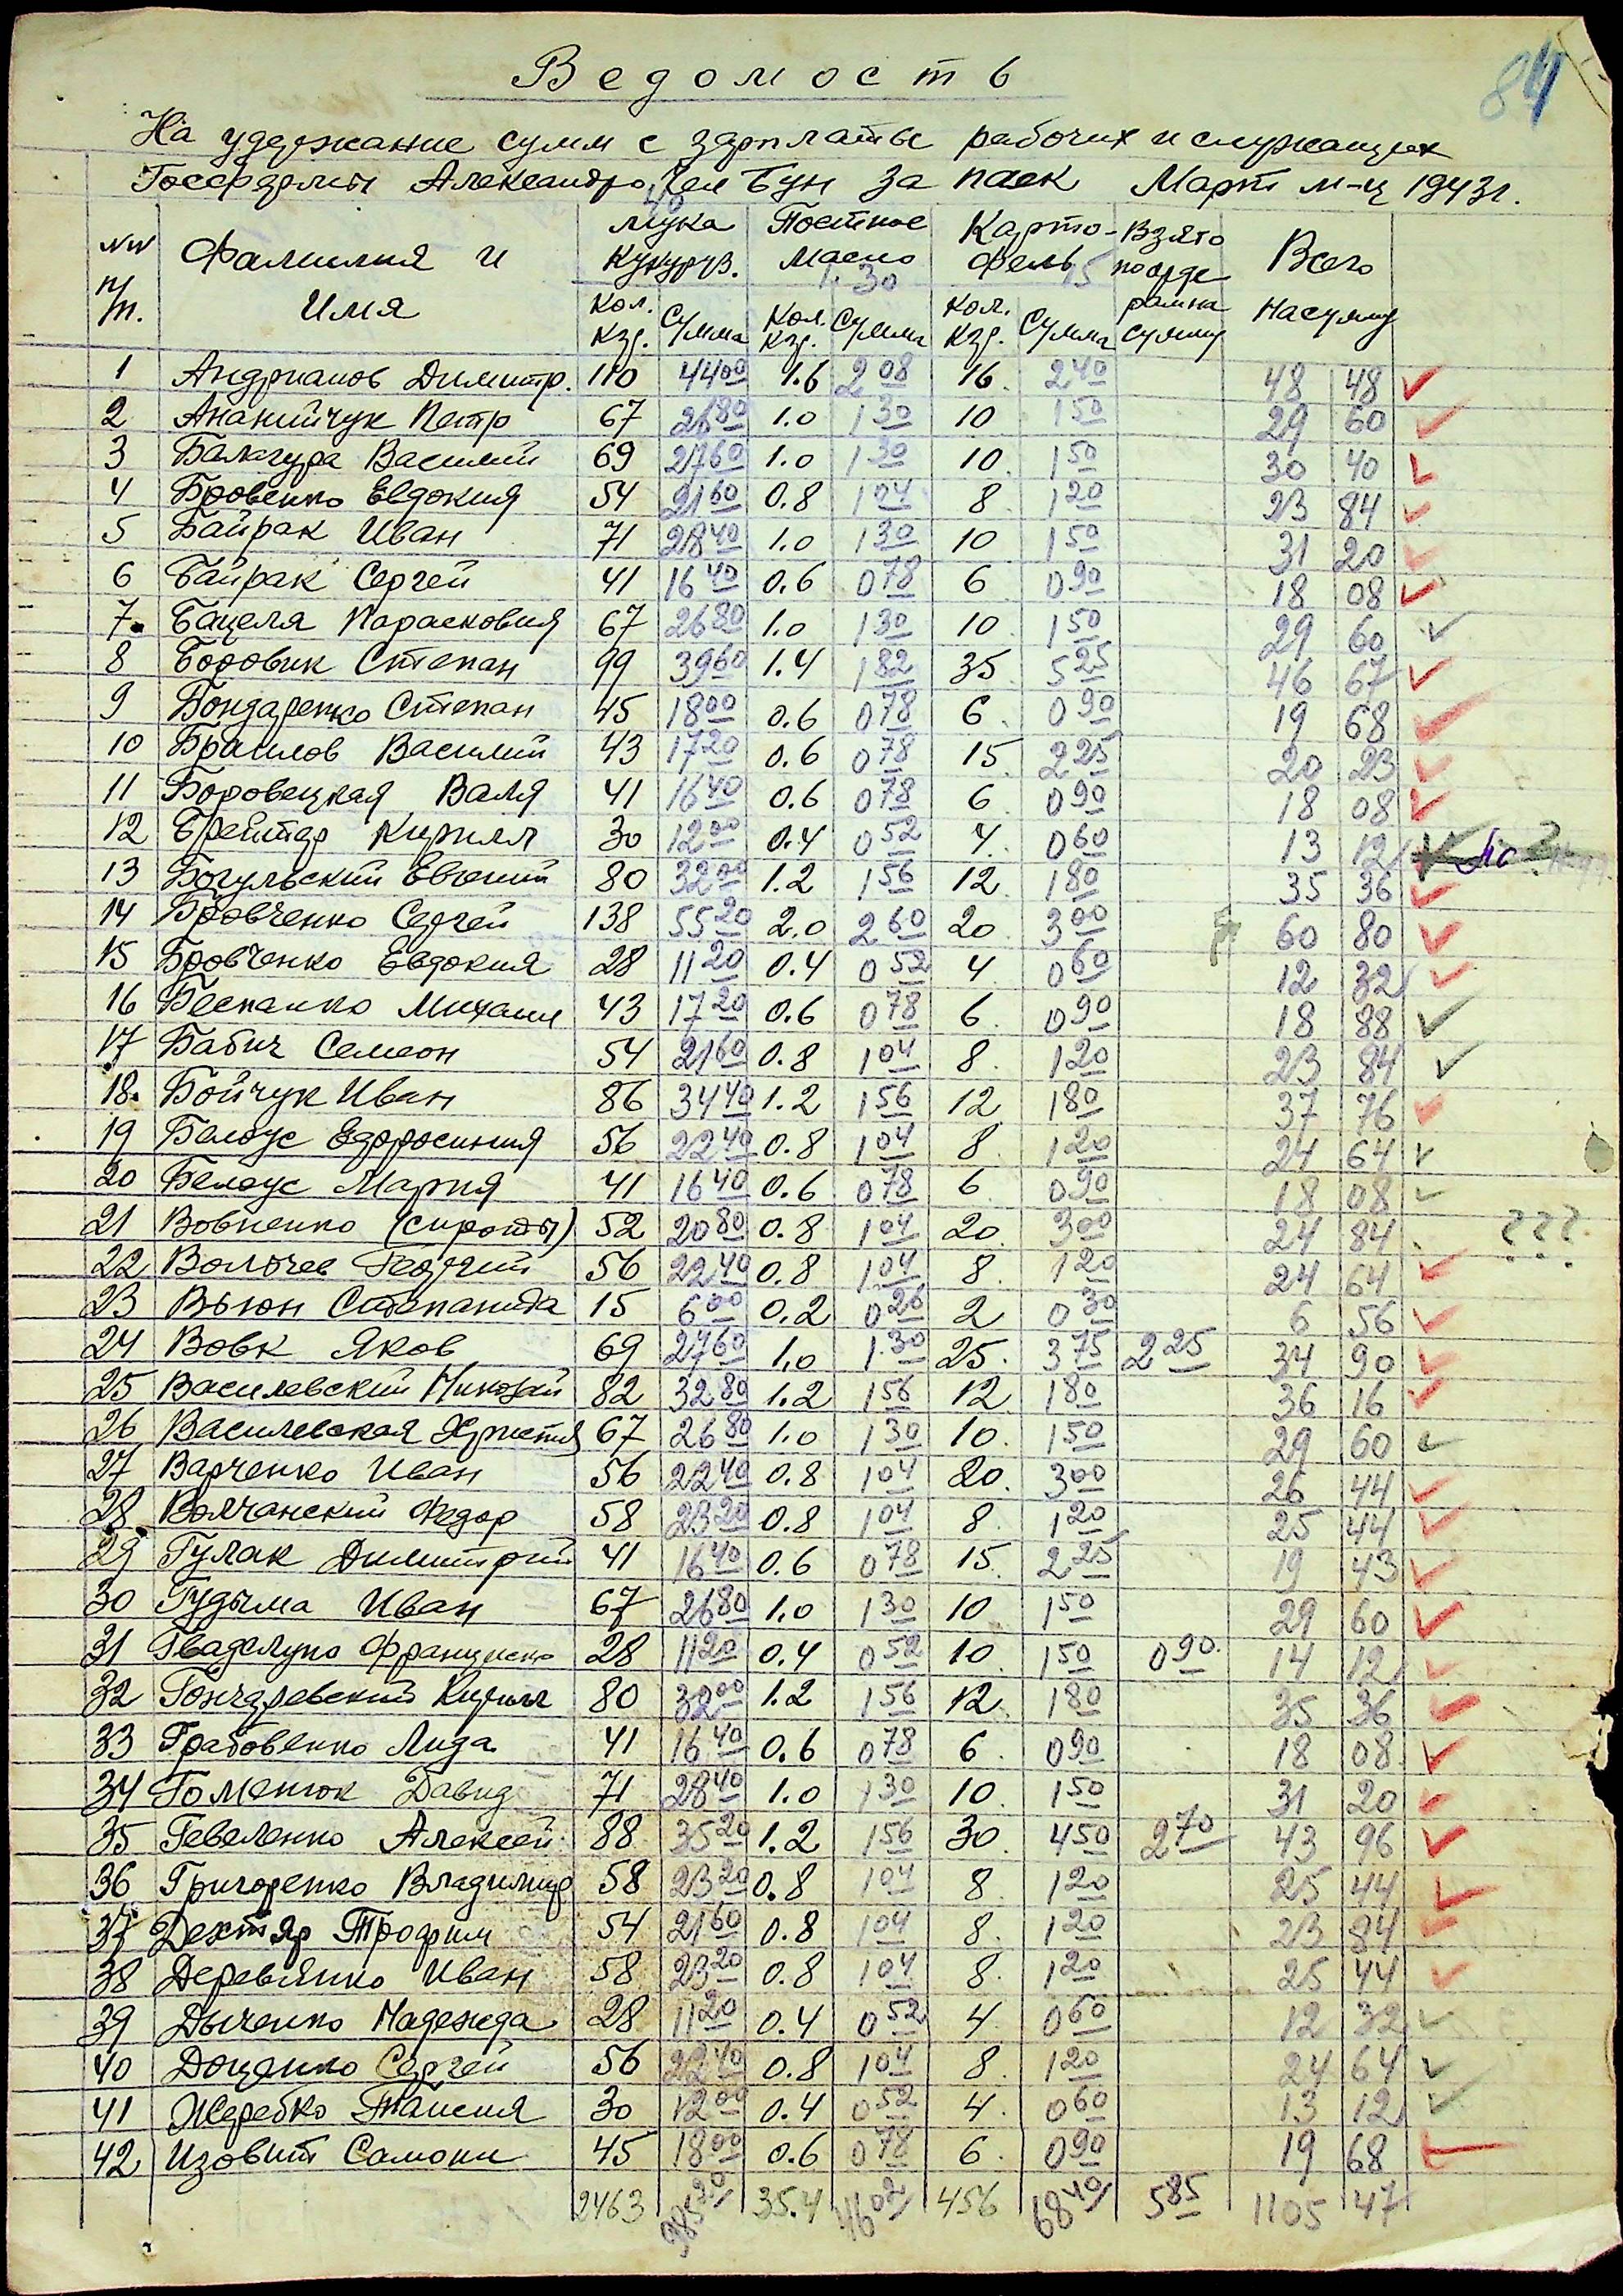 84
Ведомость
На удержание сумм с зарплаты рабочих и служащих
Госфермы Александро, Бун за паек Март м-ц 1943 г.
NN п/п. Фамилия и Имя Мука Кукуруз. 40 Постное Масло 1.30 Картофель 15 Взято по орде рам на сумму Всего На сумму
Кол. Кгр. Сумма Кол. Кгр. Сумма Кол. Кгр. Сумма
1 Андрианов Димитр. 110 4400 1.6 208 16 240 48 48
2 Ананийчук Петр 67 2680 1.0 130 10 150 29 60
3 Балагура Василий 69 2760 1.0 130 10 150 30 40
4 Бровенко Евдокия 54 2160 0.8 104 8 120 23 84
5 Байрак Иван 71 2840 1.0 130 10 150 31 20
6 Байрак Сергей 41 1640 0.6 078 6 090 18 08
7. Бацеля Парасковия 67 2680 1.0 130 10 150 29 60
8 Боровик Степан 99 3960 1.4 182 35 525 46 67
9 Бондаренко Степан 45 1800 0.6 078 6 090 19 68
10 Браилов Василий 43 1720 0.6 078 15 225 20 23
11 Боровецкая Валя 41 1640 0.6 078 6 090 18 08
12 Брейтер Кирилл 30 1200 0.4 052 4 060 13 12
13 Богульский Евгений 80 3200 1.2 156 12 180 35 36
14 Бровченко Сергей 138 5520 2.0 260 20 300 60 80
15 Бровченко Евдокия 28 1120 0.4 052 4 060 12 32
16 Беспалко Михаил 43 1720 0.6 078 6 090 18 88
17 Бабич Семеон 54 2160 0.8 104 8 120 23 84
18. Бойчук Иван 86 3440 1.2 156 12 180 37 76
19 Белоус Ефросиния 56 2240 0.8 104 8 120 24 64
20 Белоус Мария 41 1640 0.6 078 6 090 18 08
21 Вовненко (сироты) 52 2080 0.8 104 20 300 24 84 ???
22 Волочев Георгий 56 2240 0.8 104 8 120 24 64
23 Вьюн Степанида 15 600 0.2 026 2 030 6 56
24 Вовк Яков 69 2760 1.0 130 25 375 225 34 90
25 Василевский Николай 82 3280 1.2 156 12 180 36 16
26 Василевская Христия 67 2680 1.0 130 10 150 29 60
27 Варченко Иван 56 2240 0.8 104 20 300 26 44
28 Волчанский Федор 58 2320 0.8 104 8 120 25 44
29 Гулак Димитрий 41 1640 0.6 078 15 225 19 43
30 Гудыма Иван 67 2680 1.0 130 10 150 29 60
31 Гваделупо Франциско 28 1120 0.4 052 10 150 090 14 12
32 Гончаревский Кирилл 80 3200 1.2 156 12 180 35 36
33 Грабовенко Лида 41 1640 0.6 078 6 090 18 08
34 Гоменюк Давид 71 2840 1.0 130 10 150 31 20
35 Геваленко Алексей 88 3520 1.2 156 30 450 270 43 96
36 Григоренко Владимир 58 2320 0.8 104 8 120 25 44
37 Дехтяр Трофим 54 2160 0.8 104 8 120 23 84
38 Деревянко Иван 58 2320 0.8 104 8 120 25 44
39 Дыченко Надежда 28 1120 0.4 052 4 060 12 32
40 Доценко Сергей 56 2240 0.8 104 8 120 24 64
41 Жеребко Таисия 30 1200 0.4 052 4 060 13 12
42 Изовит Самоил 45 1800 0.6 078 6 090 19 68
2463 98520 35.4 4602 456 6840 585 1105 47